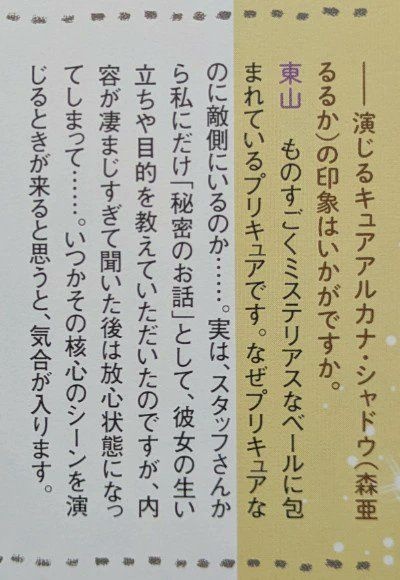 ――演じるキュアアルカナ・シャドウ(森亜
るるか)の印象はいかがですか。
東山　ものすごくミステリアスなベールに包
まれているプリキュアです。なぜプリキュアな
のに敵側にいるのか……。実は、スタッフさんか
ら私にだけ「秘密のお話」として、彼女の生い
立ちや目的を教えていただいたのですが、内
容が凄まじすぎて聞いた後は放心状態になっ
てしまって……。いつかその核心のシーンを演
じるときが来ると思うと、気合が入ります。